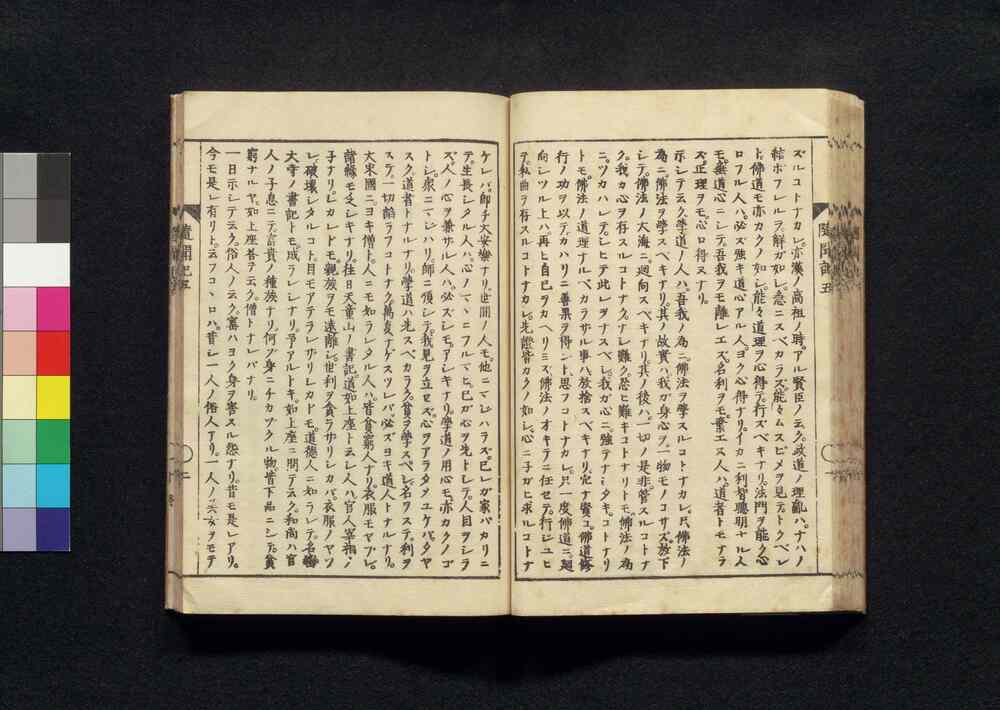 ズルコトナカレ。亦漢ノ高祖ノ時。アル賢臣ノ云ク。政道ノ理亂ハ。ナハノ
結ホフレルヲ解ガ如シ。急ニスベカラズ。能々ムスビメヲ見テトクベシ
ト。佛道モ亦カクノ如シ。能々道理ヲ心得テ。行ズベキナリ。法門ヲ能ク心
ロフル人ハ。必ズ強キ道心アル人。ヨク心得ナリ。イカニ利智聰明ナル人
モ。無道心ニシテ。吾我ヲモ離レエズ。名利ヲモ棄エヌ人ハ。道者トモナラ
ズ。正理ヲモ心ロ得ヌナリ。
示シテ云ク。學道ノ人ハ。吾我ノ為ニ。佛法ヲ學スルコトナカレ。只佛法ノ
為ニ。佛法ヲ學スベキナリ。其ノ故實ハ。我ガ身心ヲ。一物モノコサズ。放下
シテ。佛法ノ大海ニ。廻向スベキナリ。其ノ後ハ。一切ノ是非管スルコトナ
ク。我カ心ヲ存スルコトナク。ナシ難ク。忍ヒ難キコトナリトモ。佛法ノ為
ニ。ツカハレテ。シヒテ此レヲナスベシ。我ガ心ニ。強テナシタキコトナリ
トモ。佛法ノ道理ナルベカラザル事ハ。放捨スベキナリ。穴ナ賢コ。佛道修
行ノ功ヲ以テ。カハリニ善果ヲ得ント思フコトナカレ。只一度佛道ニ。廻
向シツル上ハ。再ヒ自己ヲカヘリミズ。佛法ノオキテニ任セテ。行ジユヒ
テ。私曲ヲ存スルコトナカレ。先證皆カクノ如シ。心ニ子ガヒ求ルコトナ
隨聞記五
ケレバ。即チ大安樂ナリ。世間ノ人モ。他ニマジハラズ。已レガ家バカリニ
テ。生長シタル人ハ。心ノマヽニフルマヒ。已ガ心ヲ先トシテ。人目ヲシラ
ズ。人ノ心ヲ兼サル人ハ。必ズシモ。アシキナリ。學道ノ用心モ。亦カクノゴ
トシ。衆ニマシハリ。師ニ順シテ。我見ヲ立セズ。心ヲアラタメユケバ。タヤ
スク。道者トナルナリ。學道ハ先スベカラク。貧ヲ學スベシ。名ヲステ。利ヲ
ステ。一切諂ラフコトナク。萬事ナゲスツレバ。必ズヨキ道人トナルナリ。
大宋國ニ。ヨキ僧ト。人ニモ如ラレタル人ハ。皆貧窮人ナリ。衣服モヤブレ。
諸縁モ乏シキナリ。往日天童山ノ書記。道如上座ト云レ人ハ。官人宰相ノ
子ナリ。シカレドモ。親族ヲモ遠離シ。世利ヲ貪ラザリシカバ。衣服ノヤツ
レ。破壞シタルコト。目モアテラレザリシカドモ。道德人ニ知ラレテ。名
大寺ノ書記トモ。成ラレシナリ。予アルトキ。如上座ニ問テ云ク。和尚ハ官
人ノ子息ニテ。富貴ノ種族ナリ。何ゾ身ニチカツクル物。皆下品ニシテ。貧
窮ナルヤ。如上座答テ云ク。僧トナレバナリ。
一日示シテ云ク。俗人ノ云ク。寳ハヨク身ヲ害スル怨ナリ。昔モ是レアリ。
今モ是レ有リト。云フコヽロハ。昔シ一人ノ俗人アリ。一人ノ美女ヲモテ
隨聞記五